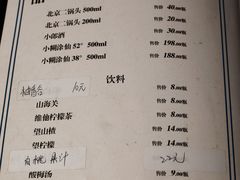 北京二锅头 500ml 售价 40.00/瓶
北京二锅头 200ml 售价 20.00/瓶
小郎酒 售价 30.00/瓶
小糊涂仙 52° 500ml 售价 198.00/瓶
小糊涂仙 38° 500ml 售价 188.00/瓶
饮料
10元
售价 8.00/瓶
山海关 售价 8.00/瓶
维他柠檬茶 售价 8.00/瓶
望山楂 售价 14.00/瓶
望柠檬 售价 14.00/瓶
核桃果汁 22元
酸梅汤 售价